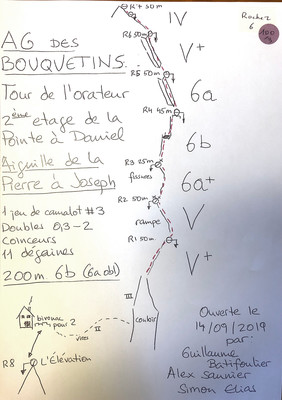 AG DES
BOUQUETINS
Tour de l'orateur
2ème etage de la
Pointe à Daniel
Aiguille de la
Pierre à Joseph
1 jeu de camalot #3
Doubles 0,3-2
Coinceurs
11 dégaines
200m 6b (6a obl)
R7 50m
IV
R6 50m
V+
R5 50m
6a
R4 45m
6b
R3 25m
6a+
fissures
R2 50m
V
rampe
R1 50m
V+
III
couloir
bivouac
pour 2
vires
II
R8
L'Élévation
Rocher
6
100
Ouverte le
14/09/2019
par:
Guillaume
Batifoulier
Alex Saunier
Simon Elias